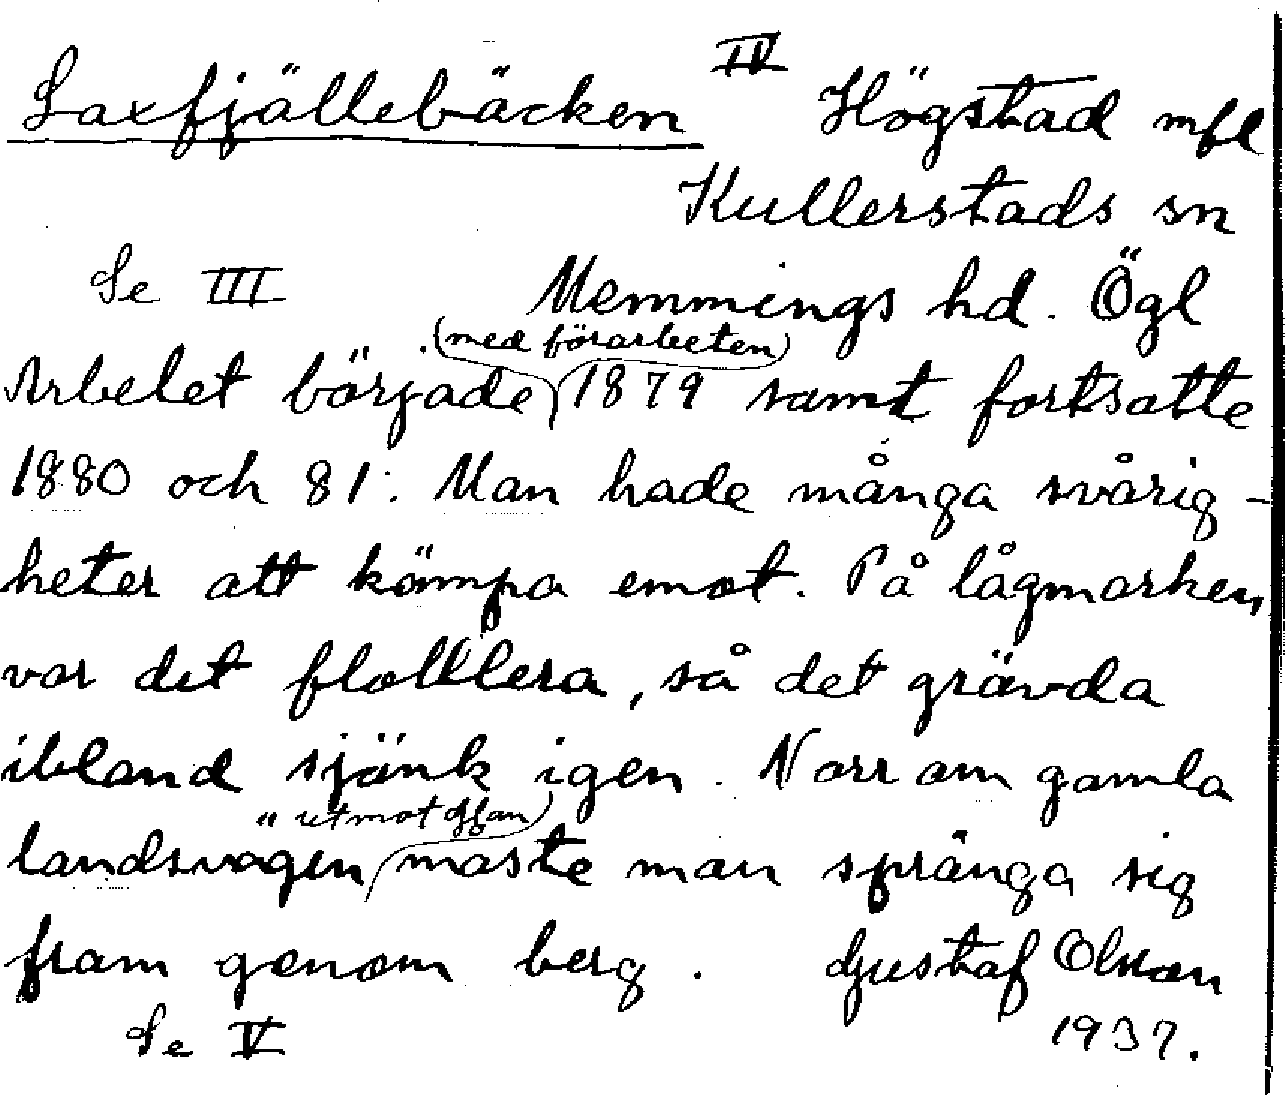 Laxfjällebäcken IV Högstad mfl
Kullerstads sn
Se III Memmings hd. Ögl
(med förarbeten)
Arbetet började 1879 samt fortsatte
1880 och 81. Man hade många svårig-
heter att kämpa emot. På lågmarken
var det flottlera, så det grävda
ibland sjönk igen. Norr om gamla
utmot
landsvägen måste man spränga sig
fram genom berg. Gustaf Olsson
Se V 1937.